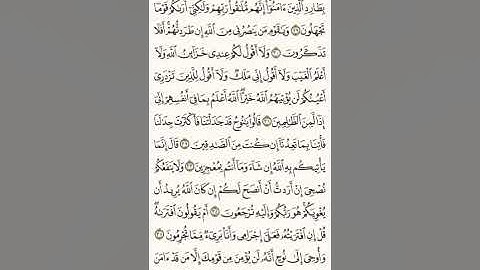 بِطَارِدِ ٱلَّذِينَ ءَامَنُوٓا۟ إِنَّهُم مُّلَـٰقُوا۟ رَبِّهِمْ وَلَـٰكِنِّىٓ أَرَىٰكُمْ قَوْمًا
تَجْهَلُونَ ٢٩ وَيَـٰقَوْمِ مَن يَنصُرُنِى مِنَ ٱللَّهِ إِن طَرَدتُّهُمْ أَفَلَا
تَذَكَّرُونَ ٣٠ وَلَآ أَقُولُ لَكُمْ عِندِى خَزَآئِنُ ٱللَّهِ وَلَآ
أَعْلَمُ ٱلْغَيْبَ وَلَآ أَقُولُ إِنِّى مَلَكٌ وَلَآ أَقُولُ لِلَّذِينَ تَزْدَرِىٓ
أَعْيُنُكُمْ لَن يُؤْتِيَهُمُ ٱللَّهُ خَيْرًا ٱللَّهُ أَعْلَمُ بِمَا فِىٓ أَنفُسِهِمْ إِنِّىٓ
إِذًا لَّمِنَ ٱلظَّـٰلِمِينَ ٣١ قَالُوا۟ يَـٰنُوحُ قَدْ جَـٰدَلْتَنَا فَأَكْثَرْتَ جِدَٰلَنَا
فَأْتِنَا بِمَا تَعِدُنَآ إِن كُنتَ مِنَ ٱلصَّـٰدِقِينَ ٣٢ قَالَ إِنَّمَا
يَأْتِيكُم بِهِ ٱللَّهُ إِن شَآءَ وَمَآ أَنتُم بِمُعْجِزِينَ ٣٣ وَلَا يَنفَعُكُمْ
نُصْحِىٓ إِنْ أَرَدتُّ أَنْ أَنصَحَ لَكُمْ إِن كَانَ ٱللَّهُ يُرِيدُ أَن
يُغْوِيَكُمْ هُوَ رَبُّكُمْ وَإِلَيْهِ تُرْجَعُونَ ٣٤ أَمْ يَقُولُونَ ٱفْتَرَىٰهُ
قُلْ إِنِ ٱفْتَرَيْتُهُۥ فَعَلَىَّ إِجْرَامِى وَأَنَا۠ بَرِىٓءٌ مِّمَّا تُجْرِمُونَ ٣٥
وَأُوحِىَ إِلَىٰ نُوحٍ أَنَّهُۥ لَن يُؤْمِنَ مِن قَوْمِكَ إِلَّا مَن قَدْ ءَامَنَ